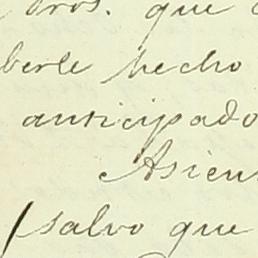 bros. que
berle hecho
anticipado
Asien
(salvo que